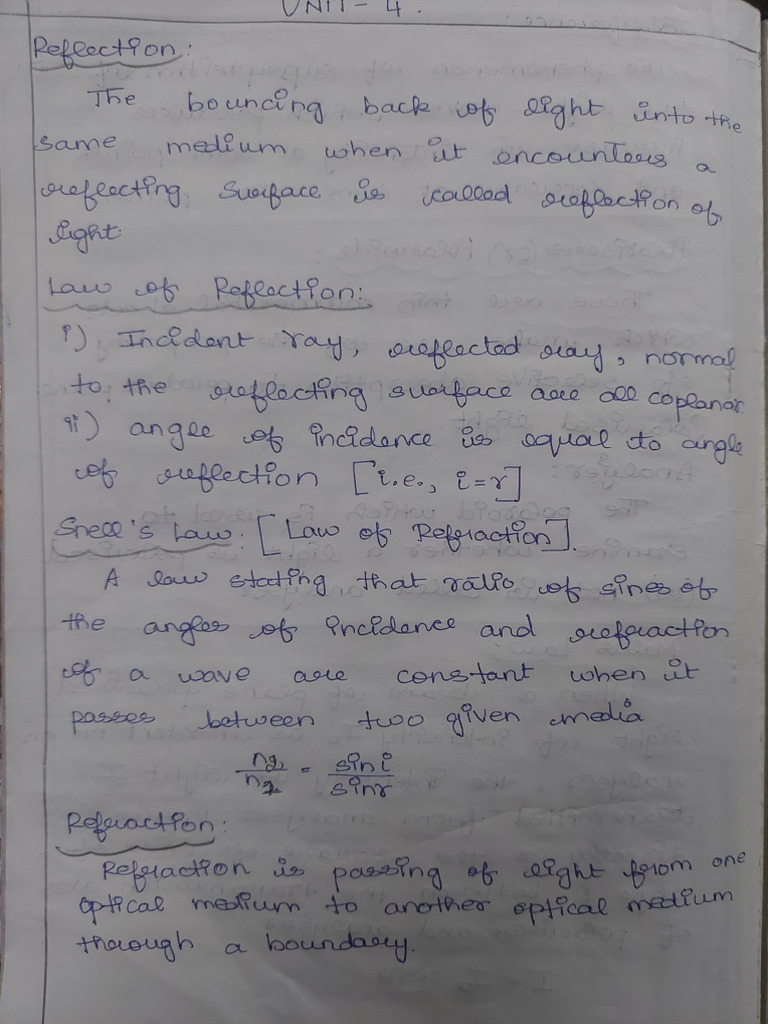 UNIT - 4.
Reflection:
The bouncing back of light into the
same medium when it encounters a
reflecting surface is called reflection of
light.
Law of Reflection:
i) Incident ray, reflected ray, normal
to the reflecting surface are all coplanar
ii) angle of incidence is equal to angle
of reflection [i.e., i=r]
Snell's Law: [Law of Refraction].
A law stating that ratio of sines of
the angles of incidence and refraction
of a wave are constant when it
passes between two given media
= sini
sinr
Refraction:
Refraction is passing of light from one
optical medium to another optical medium
through a boundary.